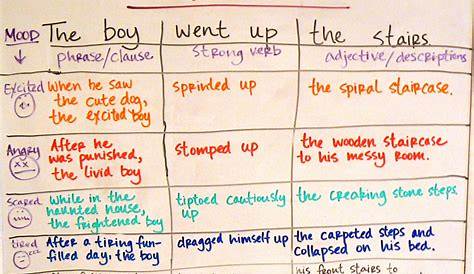 MOOD The boy went up the stairs
phrase/clause strong verb adjective/descriptions
Excited When he saw sprinded up the spiral staircase.
the cute dog,
the excited boy
Angry After he stomped up the wooden staircase
was punished, to his messy room.
the livid boy
Scared While in the tiptoed cautiously the creaking stone steps.
haunted house, up
the frightened boy
tired After a tiring fun- dragged himself up the carpeted steps and
filled day, the boy collapsed on his bed.
his front stairs to